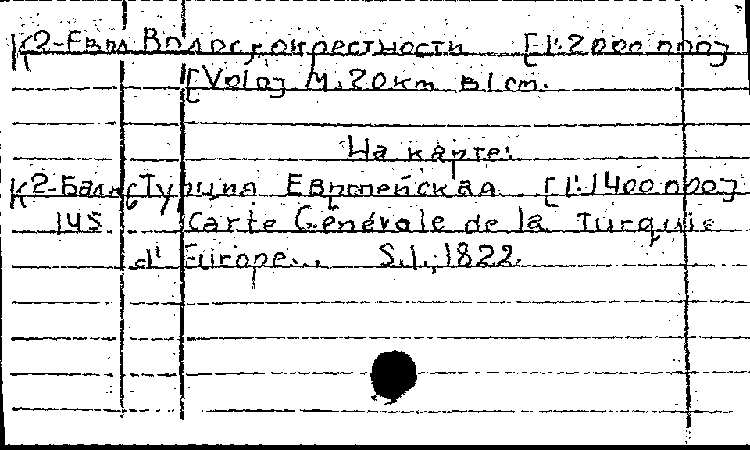 К2-Евр. Волос, окрестности [1:2000 000]
[Volo] М. 20 км в 1 см.
На карте:
К2-Балк Турция Европейская [1:1400 000]
145 Carte Générale de la Turquie
d' Europe... S.l., 1822.